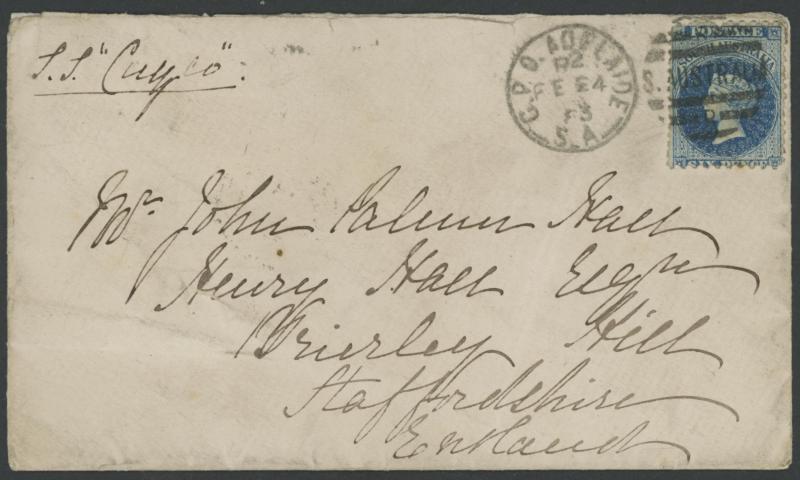 S.S. "Cuzco".
G.P.O. ADELAIDE
FE 24
83
S.A
POSTAGE
SOUTH AUSTRALIA
S. AUSTRALIA
Mr. John Palmer Hall
Henry Hall Esqre
Brierley Hill
Staffordshire
England